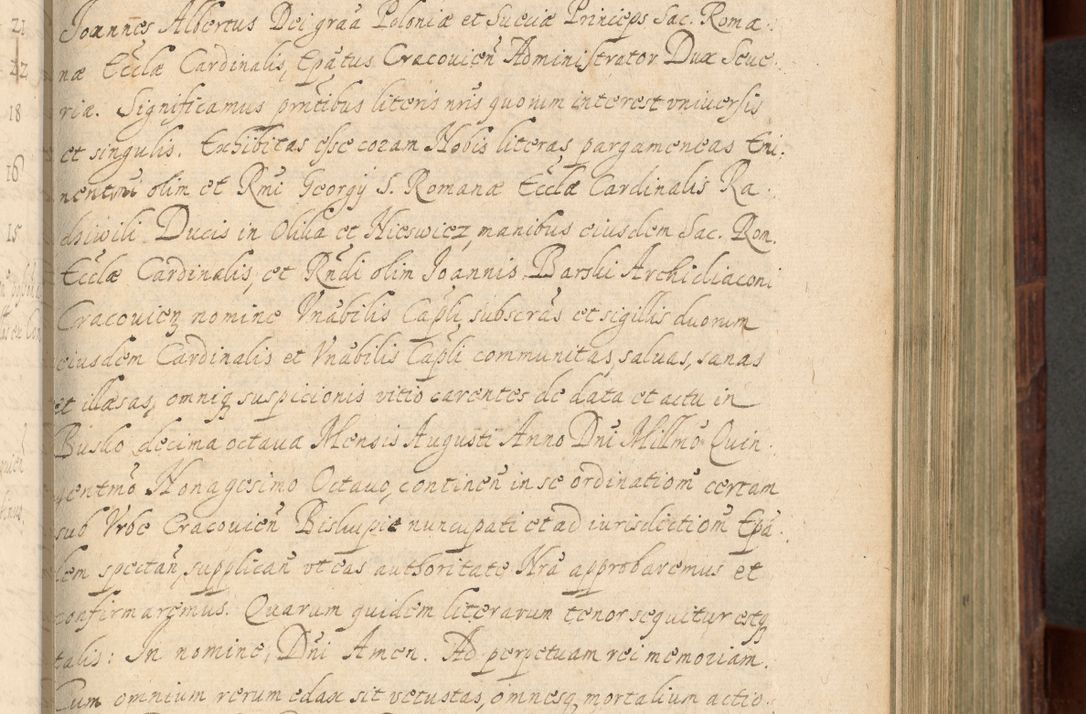 21
22
18
16
15
Joannes Albertus Dei graã Poloniæ et Sueciæ Princeps Sac. Roma
næ Eccłæ Cardinalis, Epãtus Cracovień Administrator Dux Seve
riæ. Significamus prñtibus literis nrĩs quorum interest vniuersis
et singulis. Exhibitas esse coram Nobis literas pargameneas Emi
nentmi olim et Rmĩ Georgij S. Romanæ Eccłæ Cardinalis Ra
dziwili Ducis in Olika et Nieswiez, manibus eiusdem Sac. Rom.
Eccłæ Cardinalis, et Rñdi olim Joannis Barski Archidiaconi
Cracouień nomine Vnãbilis Capłi, subscrãs et sigillis duorum
eiusdem Cardinalis et Vnãbilis Capłi communitas, saluas, sanas
et illæsas, omniq; suspicionis vitio carentes de data et actu in
Busko decima octaua Mensis Augusti Anno Dnĩ Millmõ Quin
gentmõ Nonagesimo Octauo, contineñ in se ordinatiom̃ certam
sub Vrbe Cracouień Biskupie nuncupati et ad iurisdictiom̃ Epã
lem spectañ, supplicañ vt eas authoritate Nrã approbaremus et
confirmaremus. Quarum quidem literarum tenor sequitur estq;
talis: In nomine, Dnĩ Amen. Ad perpetuam rei memoriam.
Cum omnium rerum edax sit vetustas, omnesq; mortalium actio